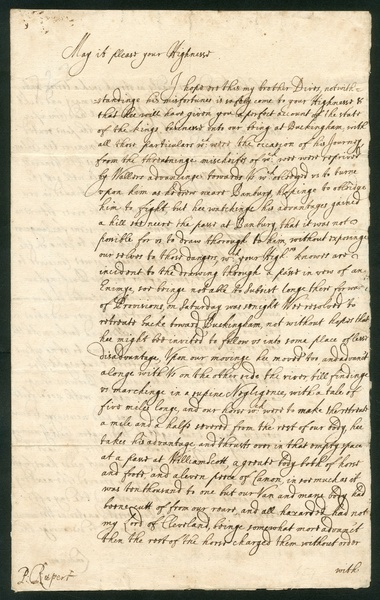 May it please your Highnesse
I hope ere this my brother Dives, notwith-
-standinge his misfortunes is safely come to your Highnesse &
that hee will have given you a perfect account of the state
of the kings businesse untill our being at Buckingham, with
all those particulars wch were the occasion of his Journy
from the threatninge mischeifes of wch wee were
by Wallers advancinge towards us wch us to turne
upon him as hee was neare Banbury, hopinge to obleidge
him to fight, but hee watchinge his advantages gained
a hill soe neere the pass at Banbury, that it was not
possible for us to draw thorough to him without exposinge
our selves to those dangers, wch your Highnes knowes are
incident to the drawing through a pass in vew of an
Enimye, soe beinge not able to subsist longe there for want
of Provisions, on Saturday was senight Wee resolved to
retreate backe toward Buckingham, not without hopes that
hee might bee invited to follow us into some place of lesse
disadvantage, Upon our movinge hee moved too and advanct
alonge with us on the other side the river till findinge
us marchinge in a supine Negligence, with a taile of
five miles longe, and our horse wch were to make the retreate
a mile and a halfe severed from the rest of our body, hee
takes his advantage and thrusts over in that empty space
at a pass at Williamscott a greate body both of horse
and foote and aleven peece of Canon, in soe much as it
was ten thousand to one but our Van and maine body had
beene cutt of from our reare, and all hazarded, had not
my Lord of Cleveland, beinge somewhat more advanct
then the rest of the horse charged them without order
with
P. Rupert